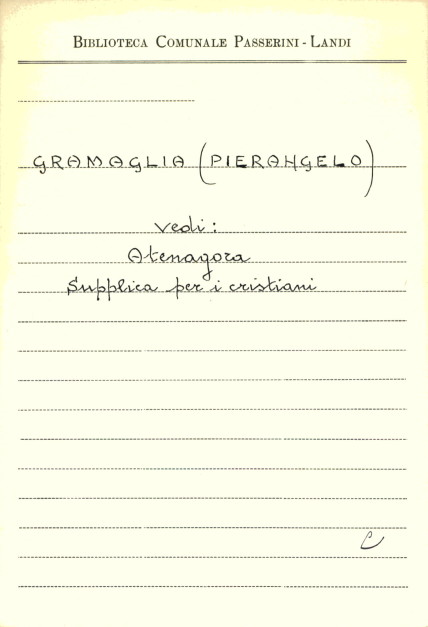 BIBLIOTECA COMUNALE PASSERINI - LANDI
GRAMAGLIA (PIERANGELO)
vedi:
Atenagora
Supplica per i cristiani
C